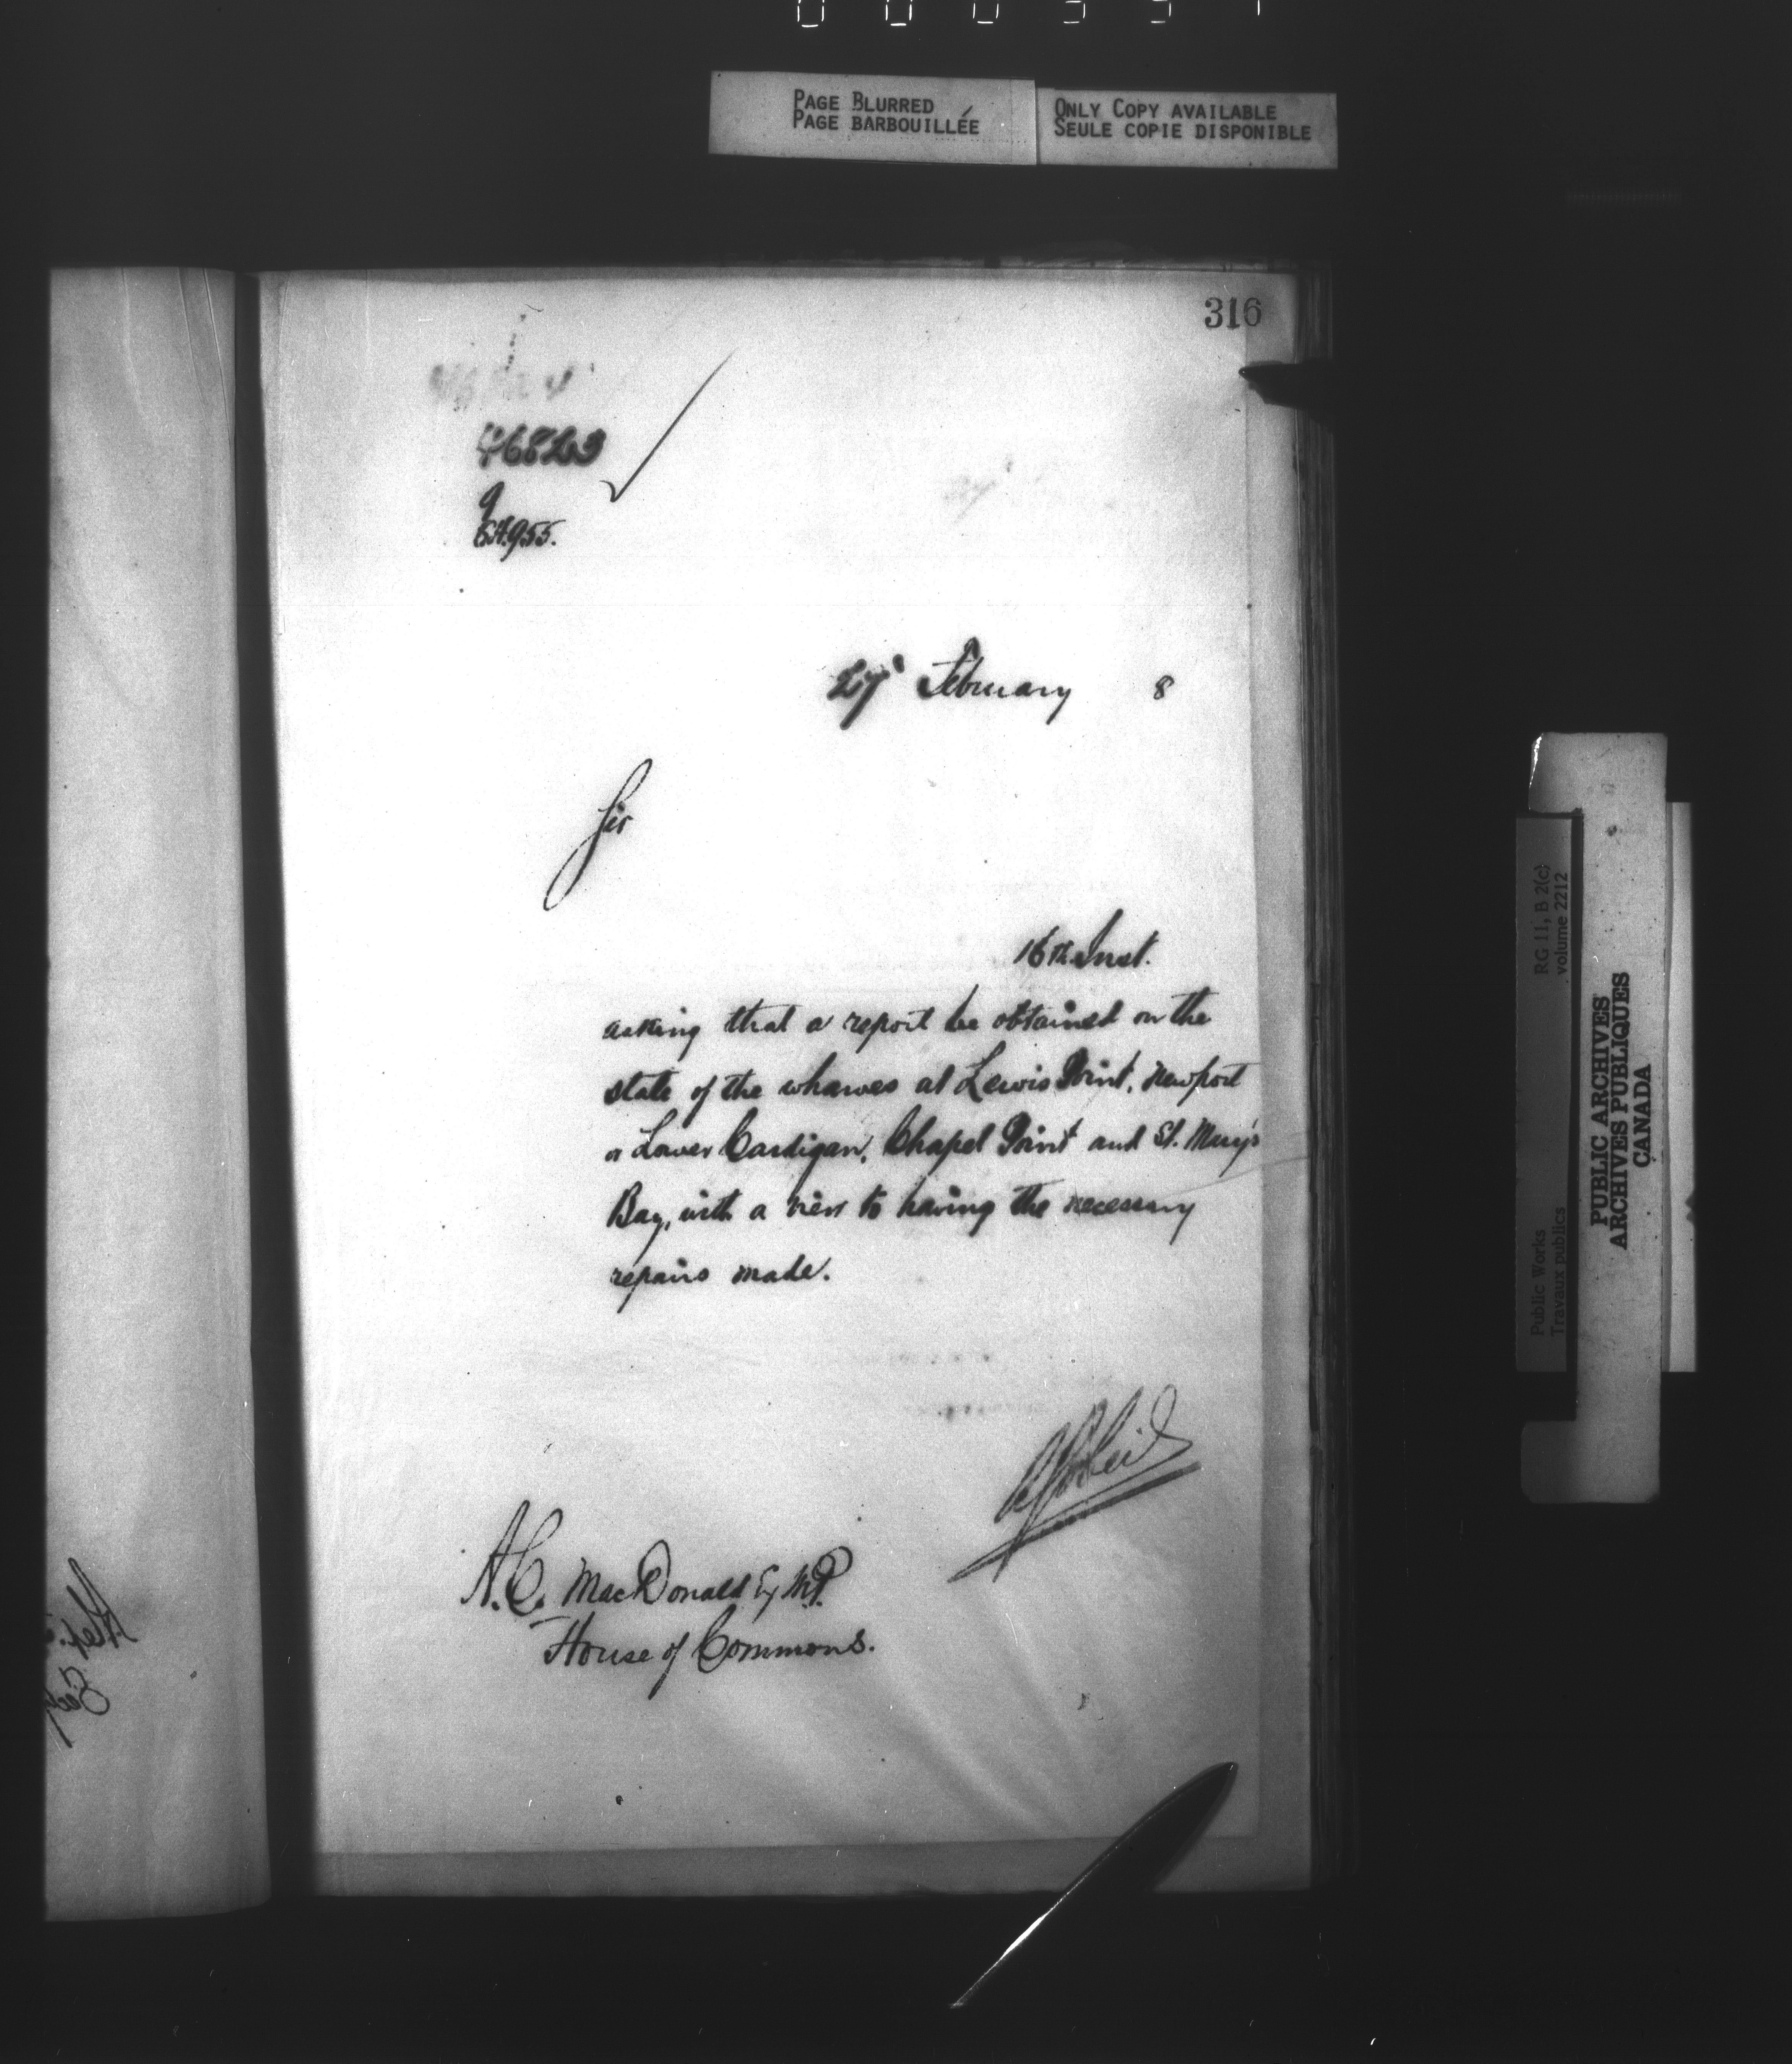 PAGE BLURRED
PAGE BARBOUILLÉE
ONLY COPY AVAILABLE
SEULE COPIE DISPONIBLE
316
46823
9
955.
27 February 8
Sir
16th Inst.
asking that a report be obtained on the
state of the wharves at Lewis Point, Newport
or Lower Cardigan, Chapel Point and St. Mary's
Bay, with a view to having the necessary
repairs made.
A.C. MacDonald Esq M.P.
House of Commons.
RG 11, B 2(c)
volume 2212
Public Works
Travaux publics
PUBLIC ARCHIVES
ARCHIVES PUBLIQUES
CANADA